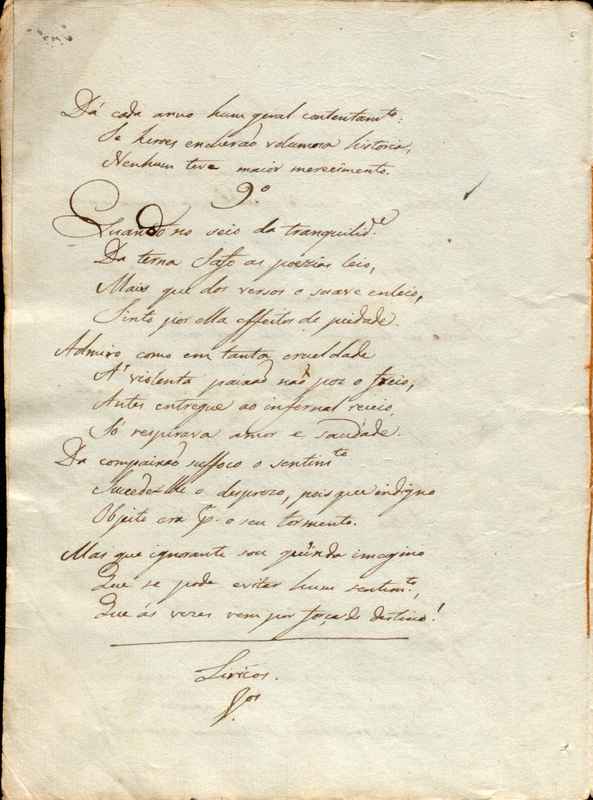 Dá cada anno hum geral contentam.to:
Se livres encherão volumosa historia,
Nenhum teve maior merecimento.
9.º
Quando no seio da tranquilid.e
Da terna Safo as poezias leio,
Mais que dos versos o suave enleio,
Sinto por ella effeitos de piedade.
Admiro como em tanta crueldade
A' violenta paixão não poz o freio,
Antes entregue ao infernal receio,
Só respirava amor e saudade.
Da compaixão suffoco o sentim.to
Succedelhe o desprezo, pois que indigno
Objeito era p.a o seu tormento.
Mas que ignorante sou quando imagino
Que se pode evitar hum sentim.to,
Que ás vezes vem por força de destino!
Liricos.
V.os